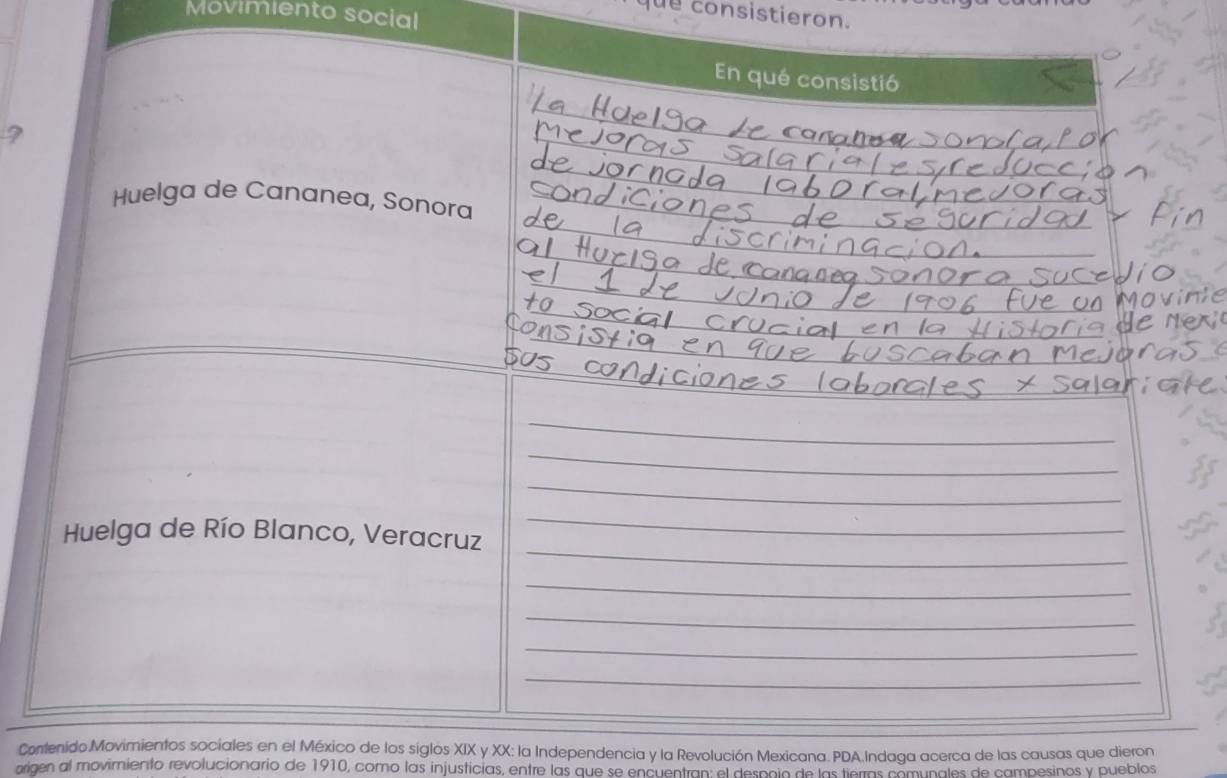 que consistieron.
Movimiento social
En qué consistió
Huelga de Cananea, Sonora
La Huelga de cananea sonora, Por
mejoras salariales, reduccion
de jornada laboral, mejoras
condiciones de seguridad y Fin
de la discriminacion.
al Huelga de cananea sonora sucedio
el 1 de junio de 1906 fue un Movimie
to social crucial en la Historia de Mexic
Consistia en que buscaban mejoras
sus condiciones laborales y salariale
Huelga de Río Blanco, Veracruz
Contenido.Movimientos sociales en el México de los siglos XIX y XX: la Independencia y la Revolución Mexicana. PDA.Indaga acerca de las causas que dieron
origen al movimiento revolucionario de 1910, como las injusticias, entre las que se encuentran: el despojo de las tierras comunales de campesinos y pueblos